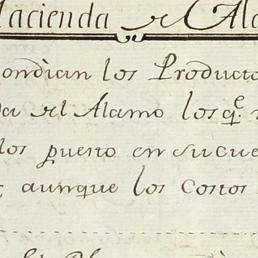 Hacienda de Ala
ondian los Producto
da del Alamo los q.e
los puesto en su cue
aunque los Costos